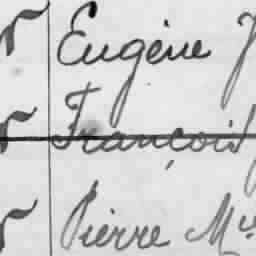 Eugène J
François
Pierre M